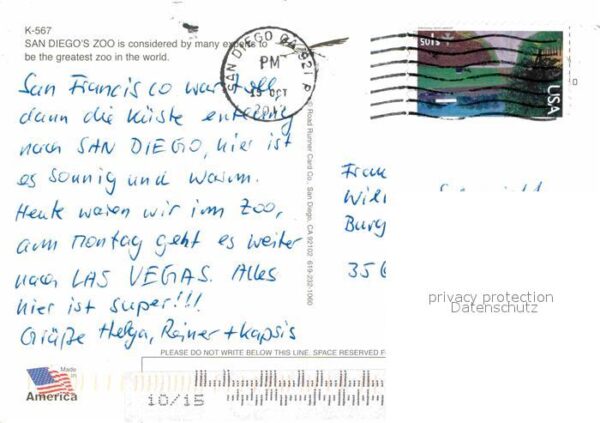 K-567
SAN DIEGO'S ZOO is considered by many experts to
be the greatest zoo in the world.
San Francisco war toll,
dann die Küste entlang
nach SAN DIEGO, hier ist
es sonnig und warm.
Heute waren wir im Zoo,
am Montag geht es weiter
nach LAS VEGAS. Alles
hier ist super!!!
Grüße Helga, Rainer +
SAN DIEGO CA 921
PM
13 OCT
© Road Runner Card Co. San Diego, CA 92102 619-232-1060
USA
Frau
Burg
356
privacy protection
Datenschutz
PLEASE DO NOT WRITE BELOW THIS LINE. SPACE RESERVED F
Made in
America
10/15